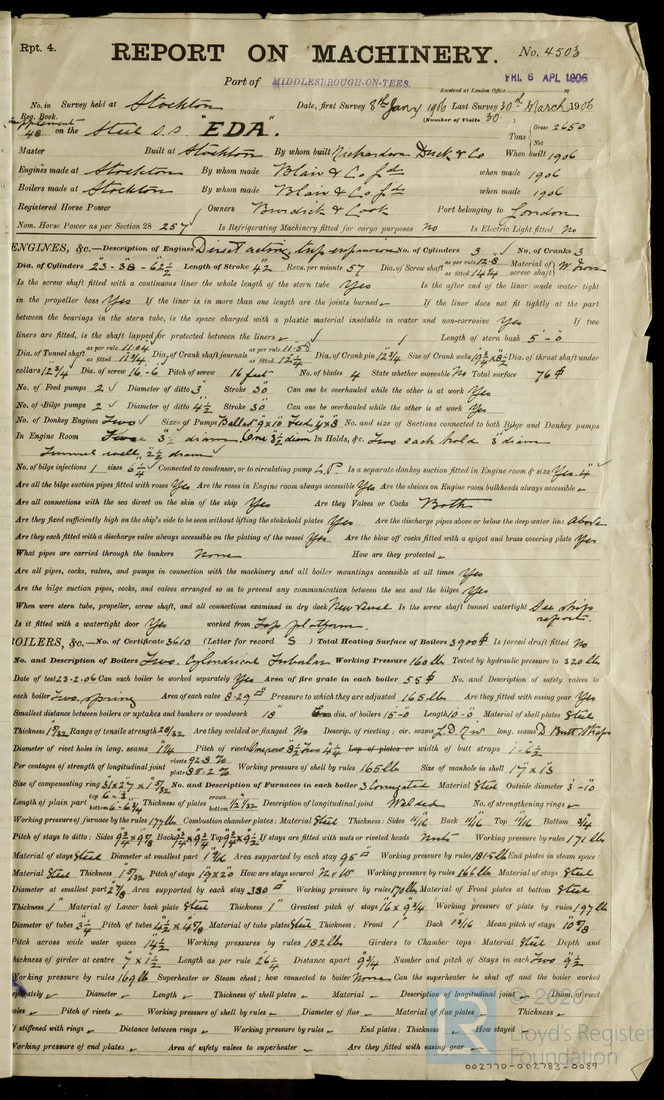 Rpt. 4.
REPORT ON MACHINERY.
No. 4503
Port of MIDDLESBROUGH-ON-TEES.
Received at London Office FRI. 6 APL 1906
No. in Survey held at Stockton Date, first Survey 8th Jany 1906 Last Survey 30th March 1906
Reg. Book. (Number of Visits 30)
48 on the Steel S.S. "EDA". Tons Gross 2650 Net
Master Built at Stockton By whom built Richardson Duck & Co When built 1906
Engines made at Stockton By whom made Blair & Co Ld when made 1906
Boilers made at Stockton By whom made Blair & Co Ld when made 1906
Registered Horse Power Owners Burdick & Cook Port belonging to London
Nom. Horse Power as per Section 28 257 Is Refrigerating Machinery fitted for cargo purposes No Is Electric Light fitted No
ENGINES, &c.—Description of Engines Direct acting trip expansion No. of Cylinders 3 No. of Cranks 3
Dia. of Cylinders 23-38-62½ Length of Stroke 42 Revs. per minute 57 Dia. of Screw shaft as per rule 12.8 as fitted 14¼ Material of screw shaft W Iron
Is the screw shaft fitted with a continuous liner the whole length of the stern tube Yes Is the after end of the liner made water tight
in the propeller boss Yes If the liner is in more than one length are the joints burned If the liner does not fit tightly at the part
between the bearings in the stern tube, is the space charged with a plastic material insoluble in water and non-corrosive Yes If two
liners are fitted, is the shaft lapped or protected between the liners Length of stern bush 5'-0
Dia. of Tunnel shaft as per rule as fitted Dia. of Crank shaft journals as per rule as fitted 12¾ Dia. of Crank pin 12¾ Size of Crank webs Dia. of thrust shaft under
collars 12¾ Dia. of screw 16-6 Pitch of screw 16 feet No. of blades 4 State whether moveable No Total surface 76
No. of Feed pumps 2 Diameter of ditto 3 Stroke 30 Can one be overhauled while the other is at work Yes
No. of Bilge pumps 2 Diameter of ditto 4½ Stroke 30 Can one be overhauled while the other is at work Yes
No. of Donkey Engines Two Sizes of Pumps Ballast 9x10 Feed 4x8 No. and size of Suctions connected to both Bilge and Donkey pumps
In Engine Room 3½ diam. One 3½ diam In Holds, &c. Two each hold 3" diam
Tunnel well, 2½ diam
No. of bilge injections 1 sizes 6½ Connected to condenser, or to circulating pump C.P. Is a separate donkey suction fitted in Engine room & size Yes. 4"
Are all the bilge suction pipes fitted with roses Yes Are the roses in Engine room always accessible Yes Are the sluices on Engine room bulkheads always accessible
Are all connections with the sea direct on the skin of the ship Yes Are they Valves or Cocks Both
Are they fixed sufficiently high on the ship's side to be seen without lifting the stokehold plates Yes Are the discharge pipes above or below the deep water line Above
Are they each fitted with a discharge valve always accessible on the plating of the vessel Yes Are the blow off cocks fitted with a spigot and brass covering plate Yes
What pipes are carried through the bunkers None How are they protected
Are all pipes, cocks, valves, and pumps in connection with the machinery and all boiler mountings accessible at all times Yes
Are the bilge suction pipes, cocks, and valves arranged so as to prevent any communication between the sea and the bilges Yes
When were stern tube, propeller, screw shaft, and all connections examined in dry dock New Vessel Is the screw shaft tunnel watertight See Ships report.
Is it fitted with a watertight door Yes worked from Top platform.
BOILERS, &c.—No. of Certificate 3610 (Letter for record S) Total Heating Surface of Boilers 3900 Is forced draft fitted No
No. and Description of Boilers Two. Cylindrical Tubular Working Pressure 160 lbs Tested by hydraulic pressure to 320 lb
Date of test 23-2-06 Can each boiler be worked separately Yes Area of fire grate in each boiler 55 No. and Description of safety valves to
each boiler Two, spring Area of each valve 8.29 Pressure to which they are adjusted 165 lb Are they fitted with easing gear Yes
Smallest distance between boilers or uptakes and bunkers or woodwork 18" dia. of boilers 15-0 Length 10-0 Material of shell plates Steel
Thickness 1 5/32 Range of tensile strength 28/32 Are they welded or flanged No Descrip. of riveting: cir. seams long. seams D Butt Straps
Diameter of rivet holes in long. seams 1¼ Pitch of rivets Lap of plates or width of butt straps 1-6½
Per centages of strength of longitudinal joint rivets 92.8 % plate 85.2 % Working pressure of shell by rules 165 lb Size of manhole in shell 17 x 13
Size of compensating ring No. and Description of Furnaces in each boiler 3 Corrugated Material Steel Outside diameter 3-10
Length of plain part top bottom Thickness of plates crown bottom 17/32 Description of longitudinal joint Welded No. of strengthening rings
Working pressure of furnace by the rules 177 lb Combustion chamber plates: Material Steel Thickness: Sides 11/16 Back 11/16 Top 11/16 Bottom ¾
Pitch of stays to ditto: Sides Back Top If stays are fitted with nuts or riveted heads Nuts Working pressure by rules 171 lb
Material of stays Steel Diameter at smallest part Area supported by each stay 95 Working pressure by rules 181.5 lb End plates in steam space:
Material Steel Thickness 1 5/32 Pitch of stays 19x20 How are stays secured N & W Working pressure by rules 166 lb Material of stays Steel
Diameter at smallest part 2 7/8 Area supported by each stay 380 Working pressure by rules 170 lb Material of Front plates at bottom Steel
Thickness 1" Material of Lower back plate Steel Thickness 1" Greatest pitch of stays 16 x 9¾ Working pressure of plate by rules 197 lb
Diameter of tubes 3¼ Pitch of tubes Material of tube plates Steel Thickness: Front 1" Back 13/16 Mean pitch of stays
Pitch across wide water spaces 14½ Working pressures by rules 182 lb Girders to Chamber tops: Material Steel Depth and
thickness of girder at centre 7 x 1½ Length as per rule 26¼ Distance apart 9¾ Number and pitch of Stays in each Two 9½
Working pressure by rules 169 lb Superheater or Steam chest; how connected to boiler None Can the superheater be shut off and the boiler worked
separately Diameter Length Thickness of shell plates Material Description of longitudinal joint Diam. of rivet
holes Pitch of rivets Working pressure of shell by rules Diameter of flue Material of flue plates Thickness
If stiffened with rings Distance between rings Working pressure by rules End plates: Thickness How stayed
Working pressure of end plates Area of safety valves to superheater Are they fitted with easing gear
© 2020
Lloyd's Register
Foundation
002770-002783-0089